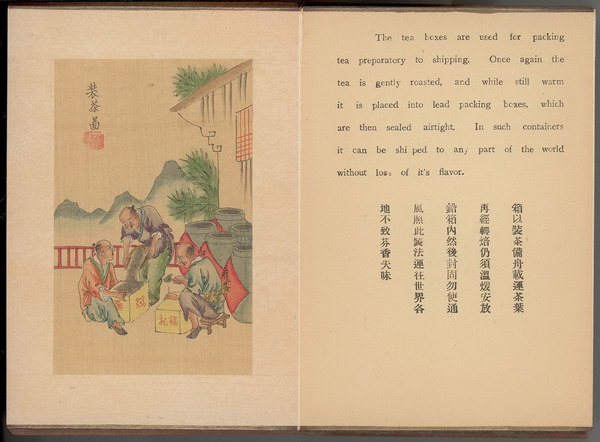 裝茶圖
The tea boxes are used for packing
tea preparatory to shipping. Once again the
tea is gently roasted, and while still warm
it is placed into lead packing boxes, which
are then sealed airtight. In such containers
it can be shi ped to any part of the world
without loss of it's flavor.
箱以裝茶備舟載運茶葉
再經輕焙仍須溫煖安放
鉛箱內然後封固勿使通
風照此裝法運往世界各
地不致芬香失味